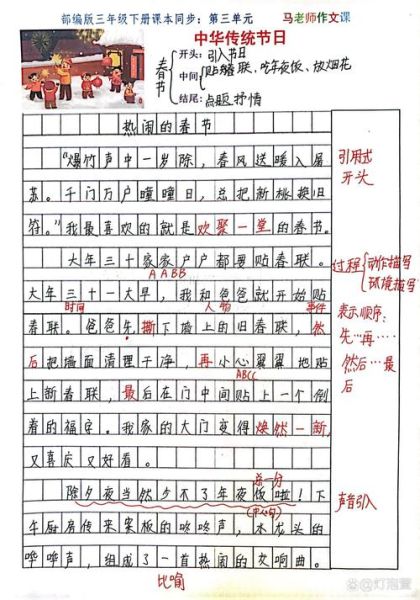 部编版三年级下册课本同步：第三单元
马老师作文课
中华传统节日
春节
开头：引入节日
中间：贴春联、吃年夜饭、放烟花
结尾：点题抒情
热闹的春节
“爆竹声中一岁除，春风送暖入屠
引用式
苏。千门万户曈曈日，总把新桃换旧
开头
符。”我最喜欢的就是欢聚一堂的春节。
大年三十家家户户都要贴春联。
过程
动作描写
环境描写
AABB
大年三十一大早，我和爸爸就开始贴
时间
人物
事件
表示顺序：
春联。爸爸先撕下墙上的旧春联，然
先…再……
后把墙面清理干净，再小心翼翼地贴
然后…最
后
ABCC
上新春联，最后在门中间贴上一个倒
着的福字。我家的大门变得焕然一新，
又喜庆又好看。
总一分
除夕夜当然少不了年夜饭啦！下
声音引入
(中心句)
午厨房传来案板的咚咚声，水龙头的
哗哗声，组成了一首热闹的交响曲。
比喻
@灯泡萱